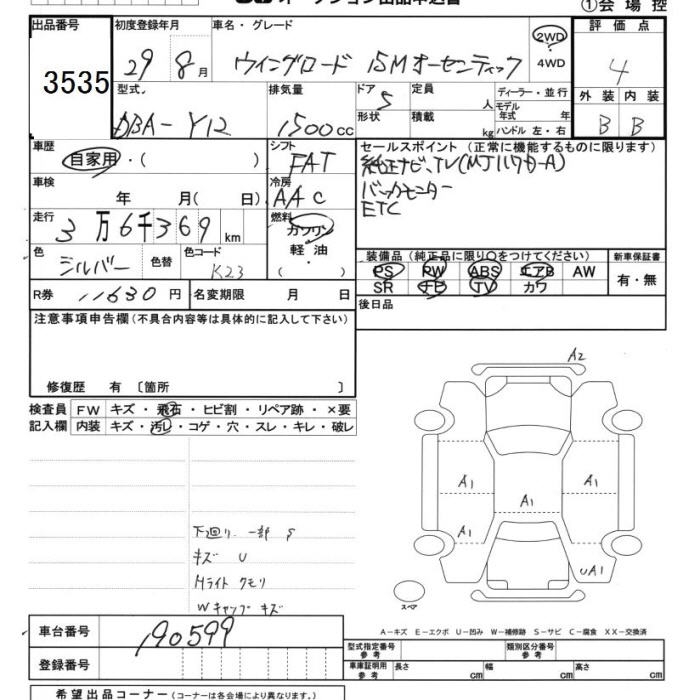 ①会場控
出品番号
3535
初度登録年月
29 8月
車名・グレード
ウイングロード 15Mオーセンティック
2WD
・
4WD
評価点
4
型式
DBA-Y12
排気量
1500cc
ドア
5
定員
人
形状
積載
kg
ディーラー・並行
モデル年式 年
ハンドル 左・右
外装 内装
B B
車歴
自家用・( )
シフト
FAT
セールスポイント(正常に機能するものに限ります)
純正ナビ、TV(MJ117D-A)
バックモニター
ETC
車検
年 月(日)
冷房
AAC
走行
3万6千369km
燃料
ガソリン
軽油
( )
色
シルバー
色替
色コード
K23
装備品(純正品に限り○をつけてください)
PS PW ABS エアB AW
SR ナビ TV カワ
新車保証書
有・無
R券 11630円
名変期限 月 日
後日品
注意事項申告欄(不具合内容等は具体的に記入して下さい)
修復歴 有〔箇所 〕
検査員記入欄
FW キズ・飛石・ヒビ割・リペア跡・×要
内装 キズ・汚レ・コゲ・穴・スレ・キレ・破レ
下廻り 一部 S
キズ U
Hライト クモリ
Wキャップ キズ
A2
A1
A1
A1
A1
UA1
スペア
A-キズ E-エクボ U-凹み W-補修跡 S-サビ C-腐食 XX-交換済
車台番号
190599
登録番号
型式指定番号
参考
類別区分番号
参考
車庫証明用
参考
長さ cm
幅 cm
高さ cm
希望出品コーナー(コーナーは各会場により異なります。)